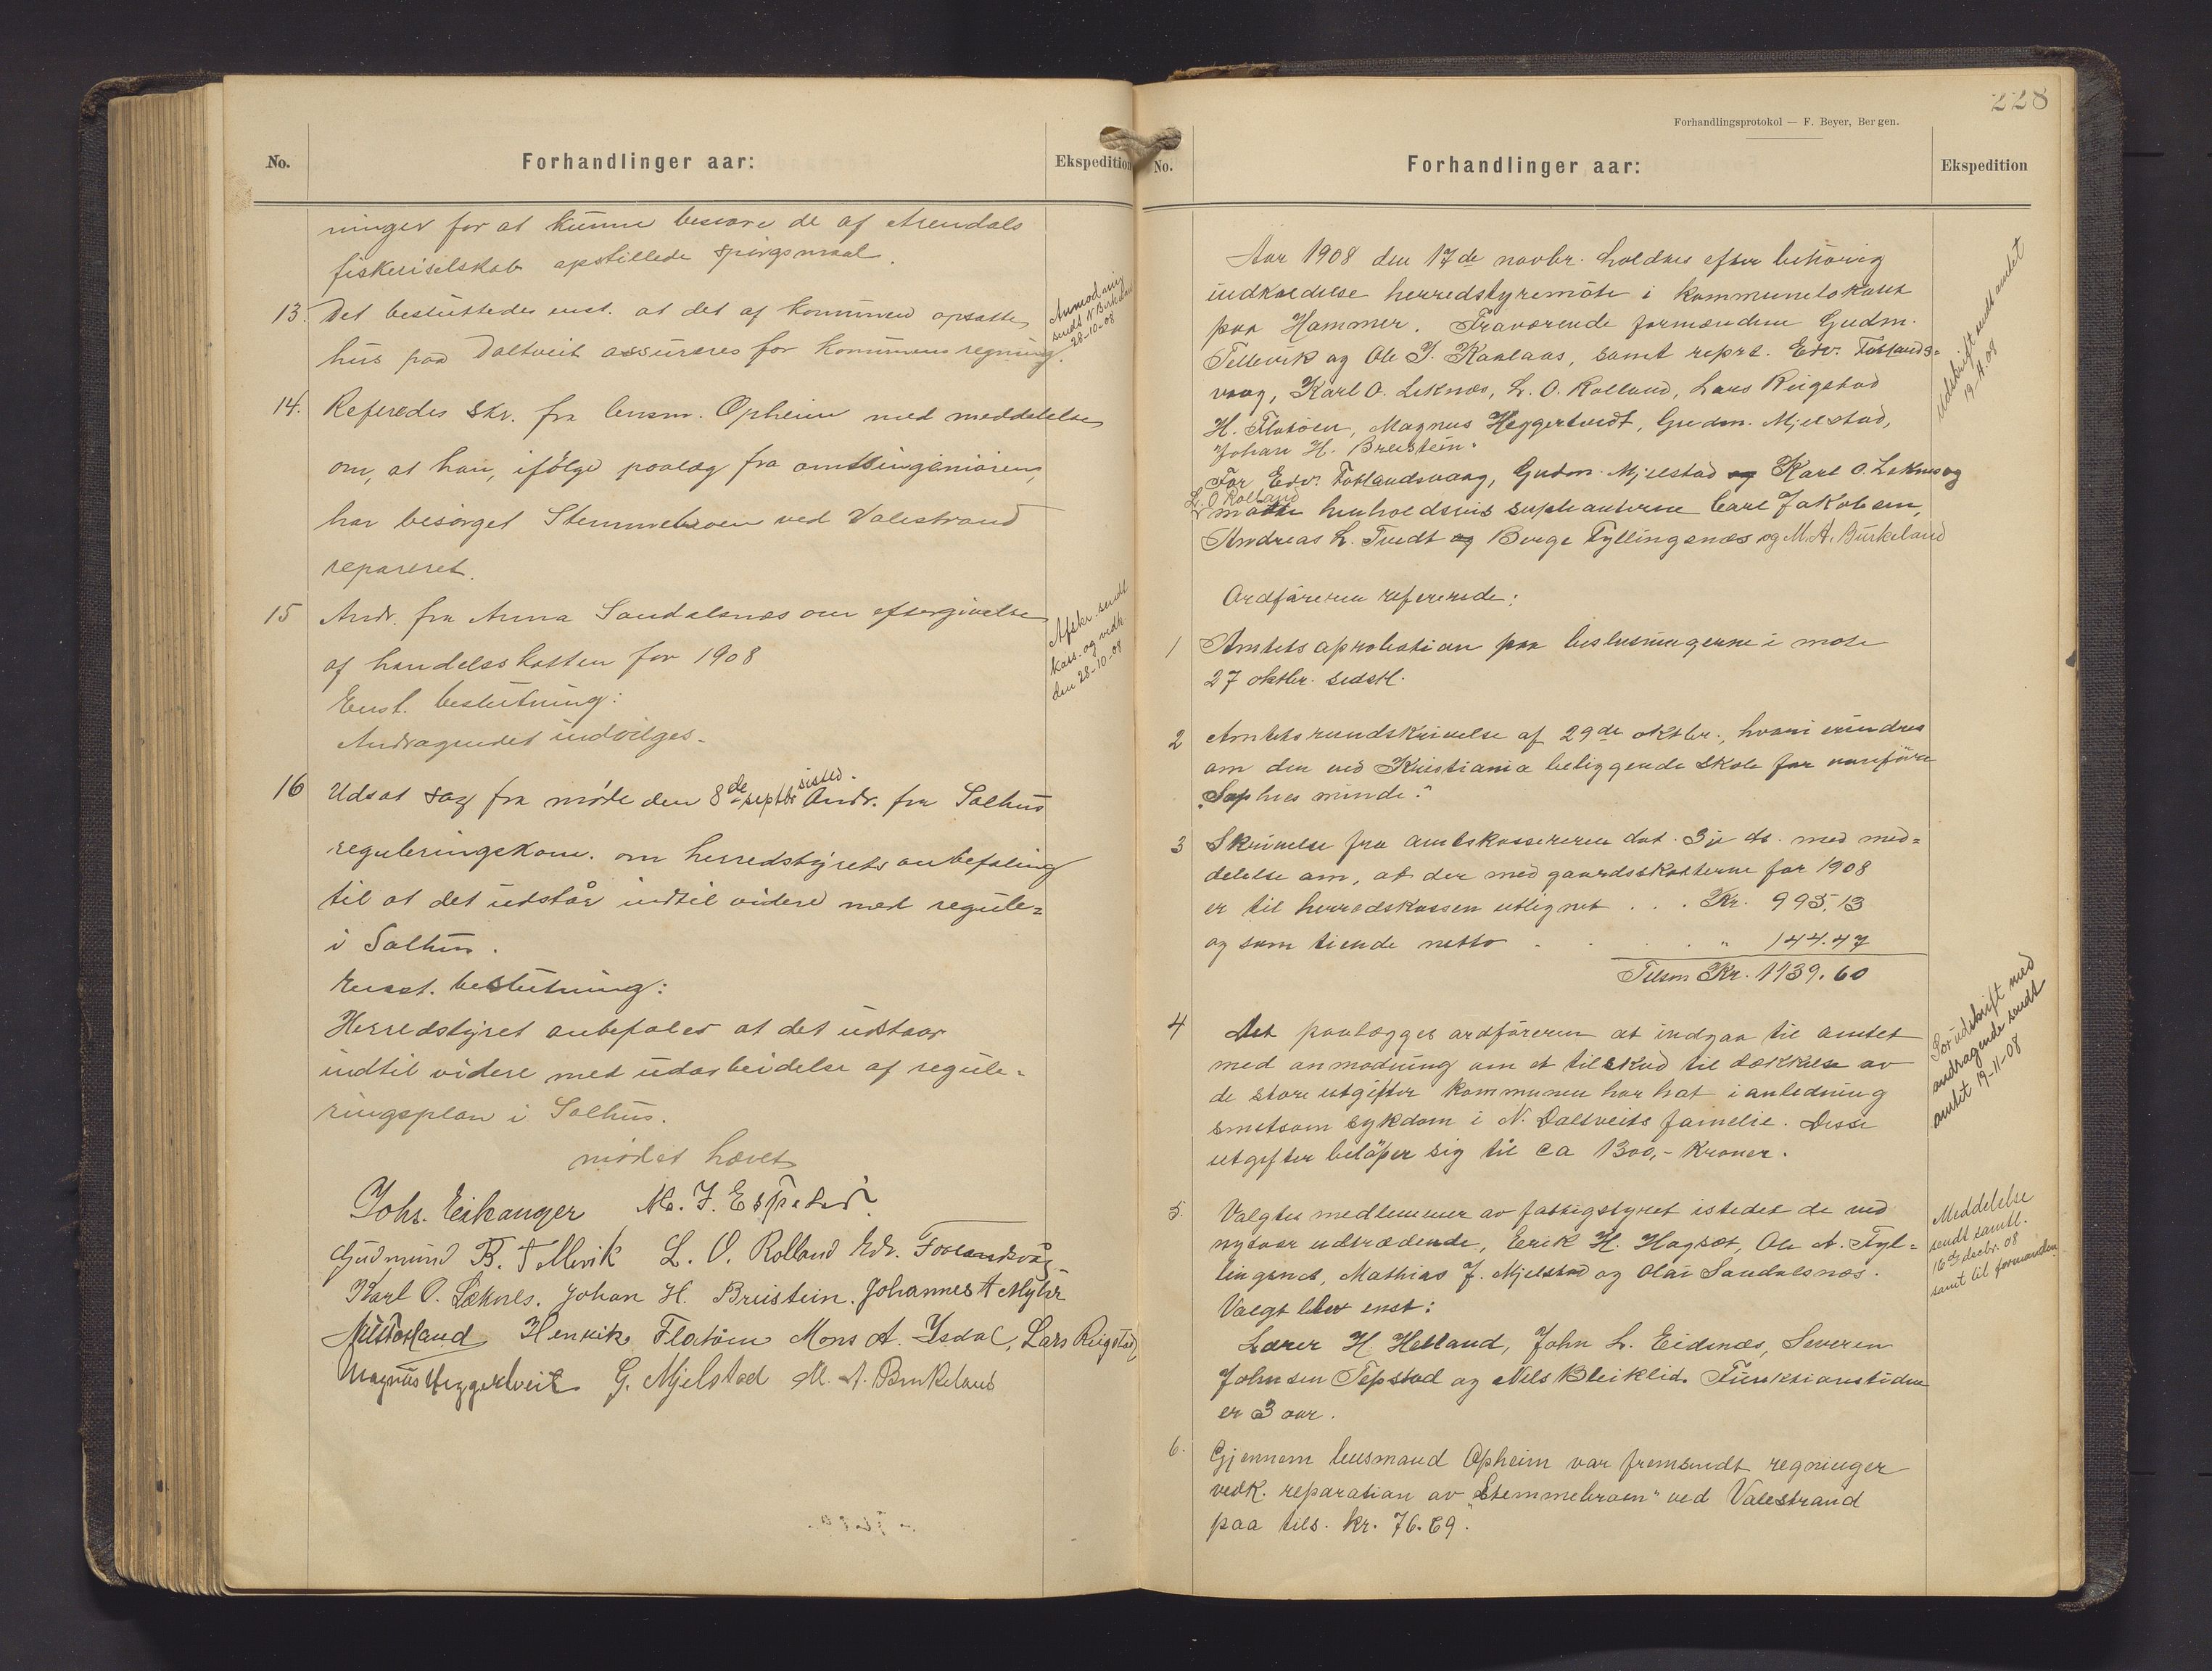 No.
Forhandlinger aar:
Ekspedition
ninger for at kunne besvare de af Arendals
fiskeriselskab opstillede spørgsmaal.
13. Det besluttedes enst. at det af kommunen opsatte
hus paa Daltveit assureres for kommunens regning.
Anmodning
sendt N Birkeland
28-10-08
14. Referedes skr. fra lensm. Opheim med meddelelse
om, at han, ifölge paalæg fra amtsingeniören,
har besörget Stemmebroen ved Valestrand
repareret.
15 Andr. fra Anna Sandalsnæs om eftergivelse
af handelsskatten for 1908
Enst. beslutning:
Andragendet indvilges.
Afskr. sendt
kass. og vedk.
den 28-10-08
16 Udsat sag fra möde den 8de septbr sistled. Andr. fra Salhus
reguleringskom. om herredstyrets anbefaling
til at det udstår indtil videre med regule=
i Salhus.
Enst. beslutning:
Herredstyret anbefaler at det udstaar
indtil videre med udarbeidelse af regule=
ringsplan i Salhus.
mödet hævet
Johs. Eikanger M. J. Espetvedt
Gudmund B. Tellevik L. O. Rolland Edv. Fotlandsvåg
Karl O. Leknes. Johan H. Breistein. Johannes A Myhr
Henrik Flatöen Mons A. Isdal, Lars Reigstad,
Magnus Heggertveit G. Mjelstad M. A. Burkeland
228
Forhandlingsprotokol — F. Beyer, Bergen.
No.
Forhandlinger aar:
Ekspedition
Aar 1908 den 17de novbr. holdtes efter behörig
indkaldelse herredstyremöte i kommunelokalet
paa Hammer. Fraværende formændene Gudm.
Tellevik og Ole J. Kaalaas, samt repræ. Edv. Fotlands=
vaag, Karl O. Leknæs, L. O. Rolland, Lars Reigstad
H. Flatöen, Magnus Heggertveidt, Gudm. Mjelstad,
Johan H. Breistein.
Udskrift sendt amtet
19-11-08
For Edv. Fotlandsvaag, Gudm. Mjelstad og Karl O. Leknes og
L. O Rolland
mötte henholdsvis suppleanterne Carl Jakobsen,
Andreas L. Tvedt og Börge Fyllingsnæs og M. A. Burkeland
Ordföreren refererede:
1 Amtets aprobation paa beslutningerne i möte
27 oktbr. sidstl.
2 Amtets rundskrivelse af 29de oktbr., hvori erindres
om den ved Kristiania beliggende skole for vanföre
"Sophies minde."
3 Skrivelse fra amtskassereren dat. 3je ds. med med=
delelse om, at der med gaardsskatterne for 1908
er til herredskassen utlignet . . . Kr. 995,13
og som tiende netto . . . . " 144.47
Tilsm Kr. 1139.60
4 Det paalægges ordföreren at indgaa til amtet
med anmodning om et tilskud til dækkelse av
de store utgifter kommunen har hat i anledning
smitsom sykdom i N. Daltveits familie. Disse
utgifter belöper sig til ca 1300,- Kroner.
Sorudskrift med
andragende sendt
amtet 19-11-08
5. Valgtes medlemmer av fattigstyret istedet de ved
nytaar udtrædende, Erik H. Hagsæt, Ole A. Fyl=
lingsnes, Mathias J. Mjelstad og Olai Sandalsnæs.
Valgt blev enst:
Lærer H. Helland, John L. Eidsnæs, Severin
Johnsen Tepstad og Nels Bleiklid. Funktionstiden
er 3 aar.
Meddelelse
sendt samtl.
16de decbr. 08
samt til formanden
6. Gjennem lensmand Opheim var fremsendt regninger
vedk. reparation av "Stemmebroen" ved Valestrand
paa tils. kr. 76.69.